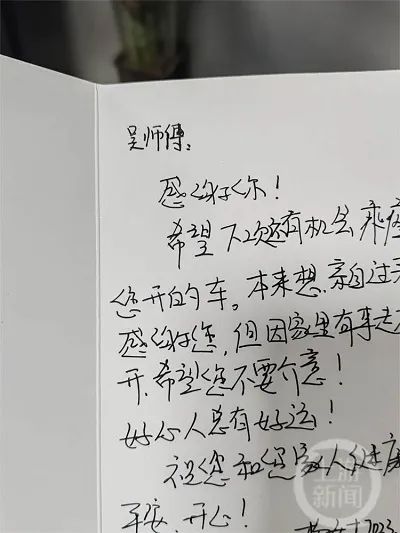 吴师傅:
感谢你!
希望下次还有机会乘
您开的车。本来想亲自过
感谢您,但因家里有事走不
开,希望您不要介意!
好心人总有好运!
祝您和您家人健康
平安、开心!
2023
上游
新闻